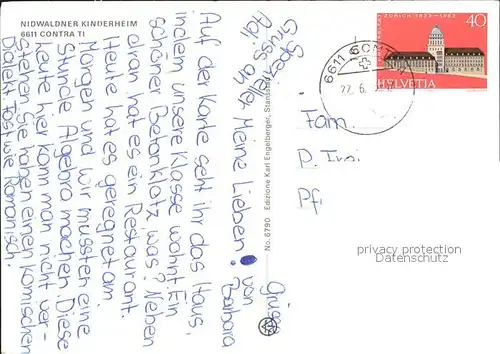 NIDWALDNER KINDERHEIM
6611 CONTRA TI
Meine Lieben!
Auf der Karte seht ihr das Haus,
indem unsere Klasse wohnt. Ein
schöner Betonklotz, was? Neben
dran hat es ein Restaurant.
Heute hat es geregnet am
Morgen und wir mussten eine
Stunde Algebra machen. Diese
Leute hier kann man nicht ver-
stehen. Sie haben einen komischen
Dialekt. Tos wie Romanisch.
Grüsse
von
Barbara
Spezieller
Gruss an
No. 6790 Edizione Karl Engelberger, Stansstad
6611 CONTRA
22. 6.
ZÜRICH 1833-1983
40
HELVETIA
Fam.
Pf
privacy protection
Datenschutz